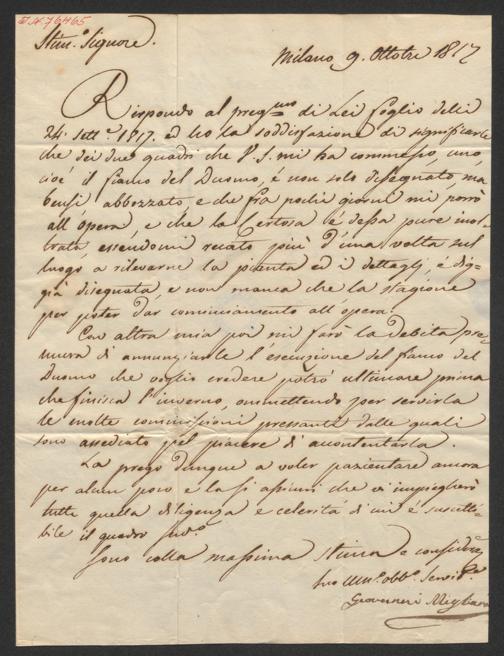 I.N. 76465
Stim.º Signore.
Milano 9. Ottobre 1817
Rispondo al preg.mo di Lei foglio delli
24. sett.e 1817. ed ho la soddisfazione di significarle
che dei due quadri che V.S. mi ha commesso, uno,
cioè il fianco del Duomo, è non solo disegnato, ma
bensì abbozzato, e che fra pochi giorni mi porrò
all'opera, e che la Certosa è dessa pure inol-
trata, essendomi recato più d'una volta sul
luogo a rilevarne la pianta ed i dettagli, è dig-
già disegnata, e non manca che la stagione
per poter dar cominciamento all'opera.
Con altra mia poi mi farò la debita pre-
mura di annunziarle l'esecuzione del fianco del
Duomo che voglio credere potrò ultimare prima
che finisca l'inverno, ommettendo per servirla
le molte commissioni pressanti dalle quali
sono assediato pel piacere di accontentarla.
La prego dunque a voler pazientare ancora
per alcun poco e la si assicuri che vi impiegherò
tutta quella diligenza e celerità di cui è suscetti-
bile il quadro sud.º
Sono colla massima stima e considerᵉ
suo Um.º obb.º Servid.e
Giovanni Migliara